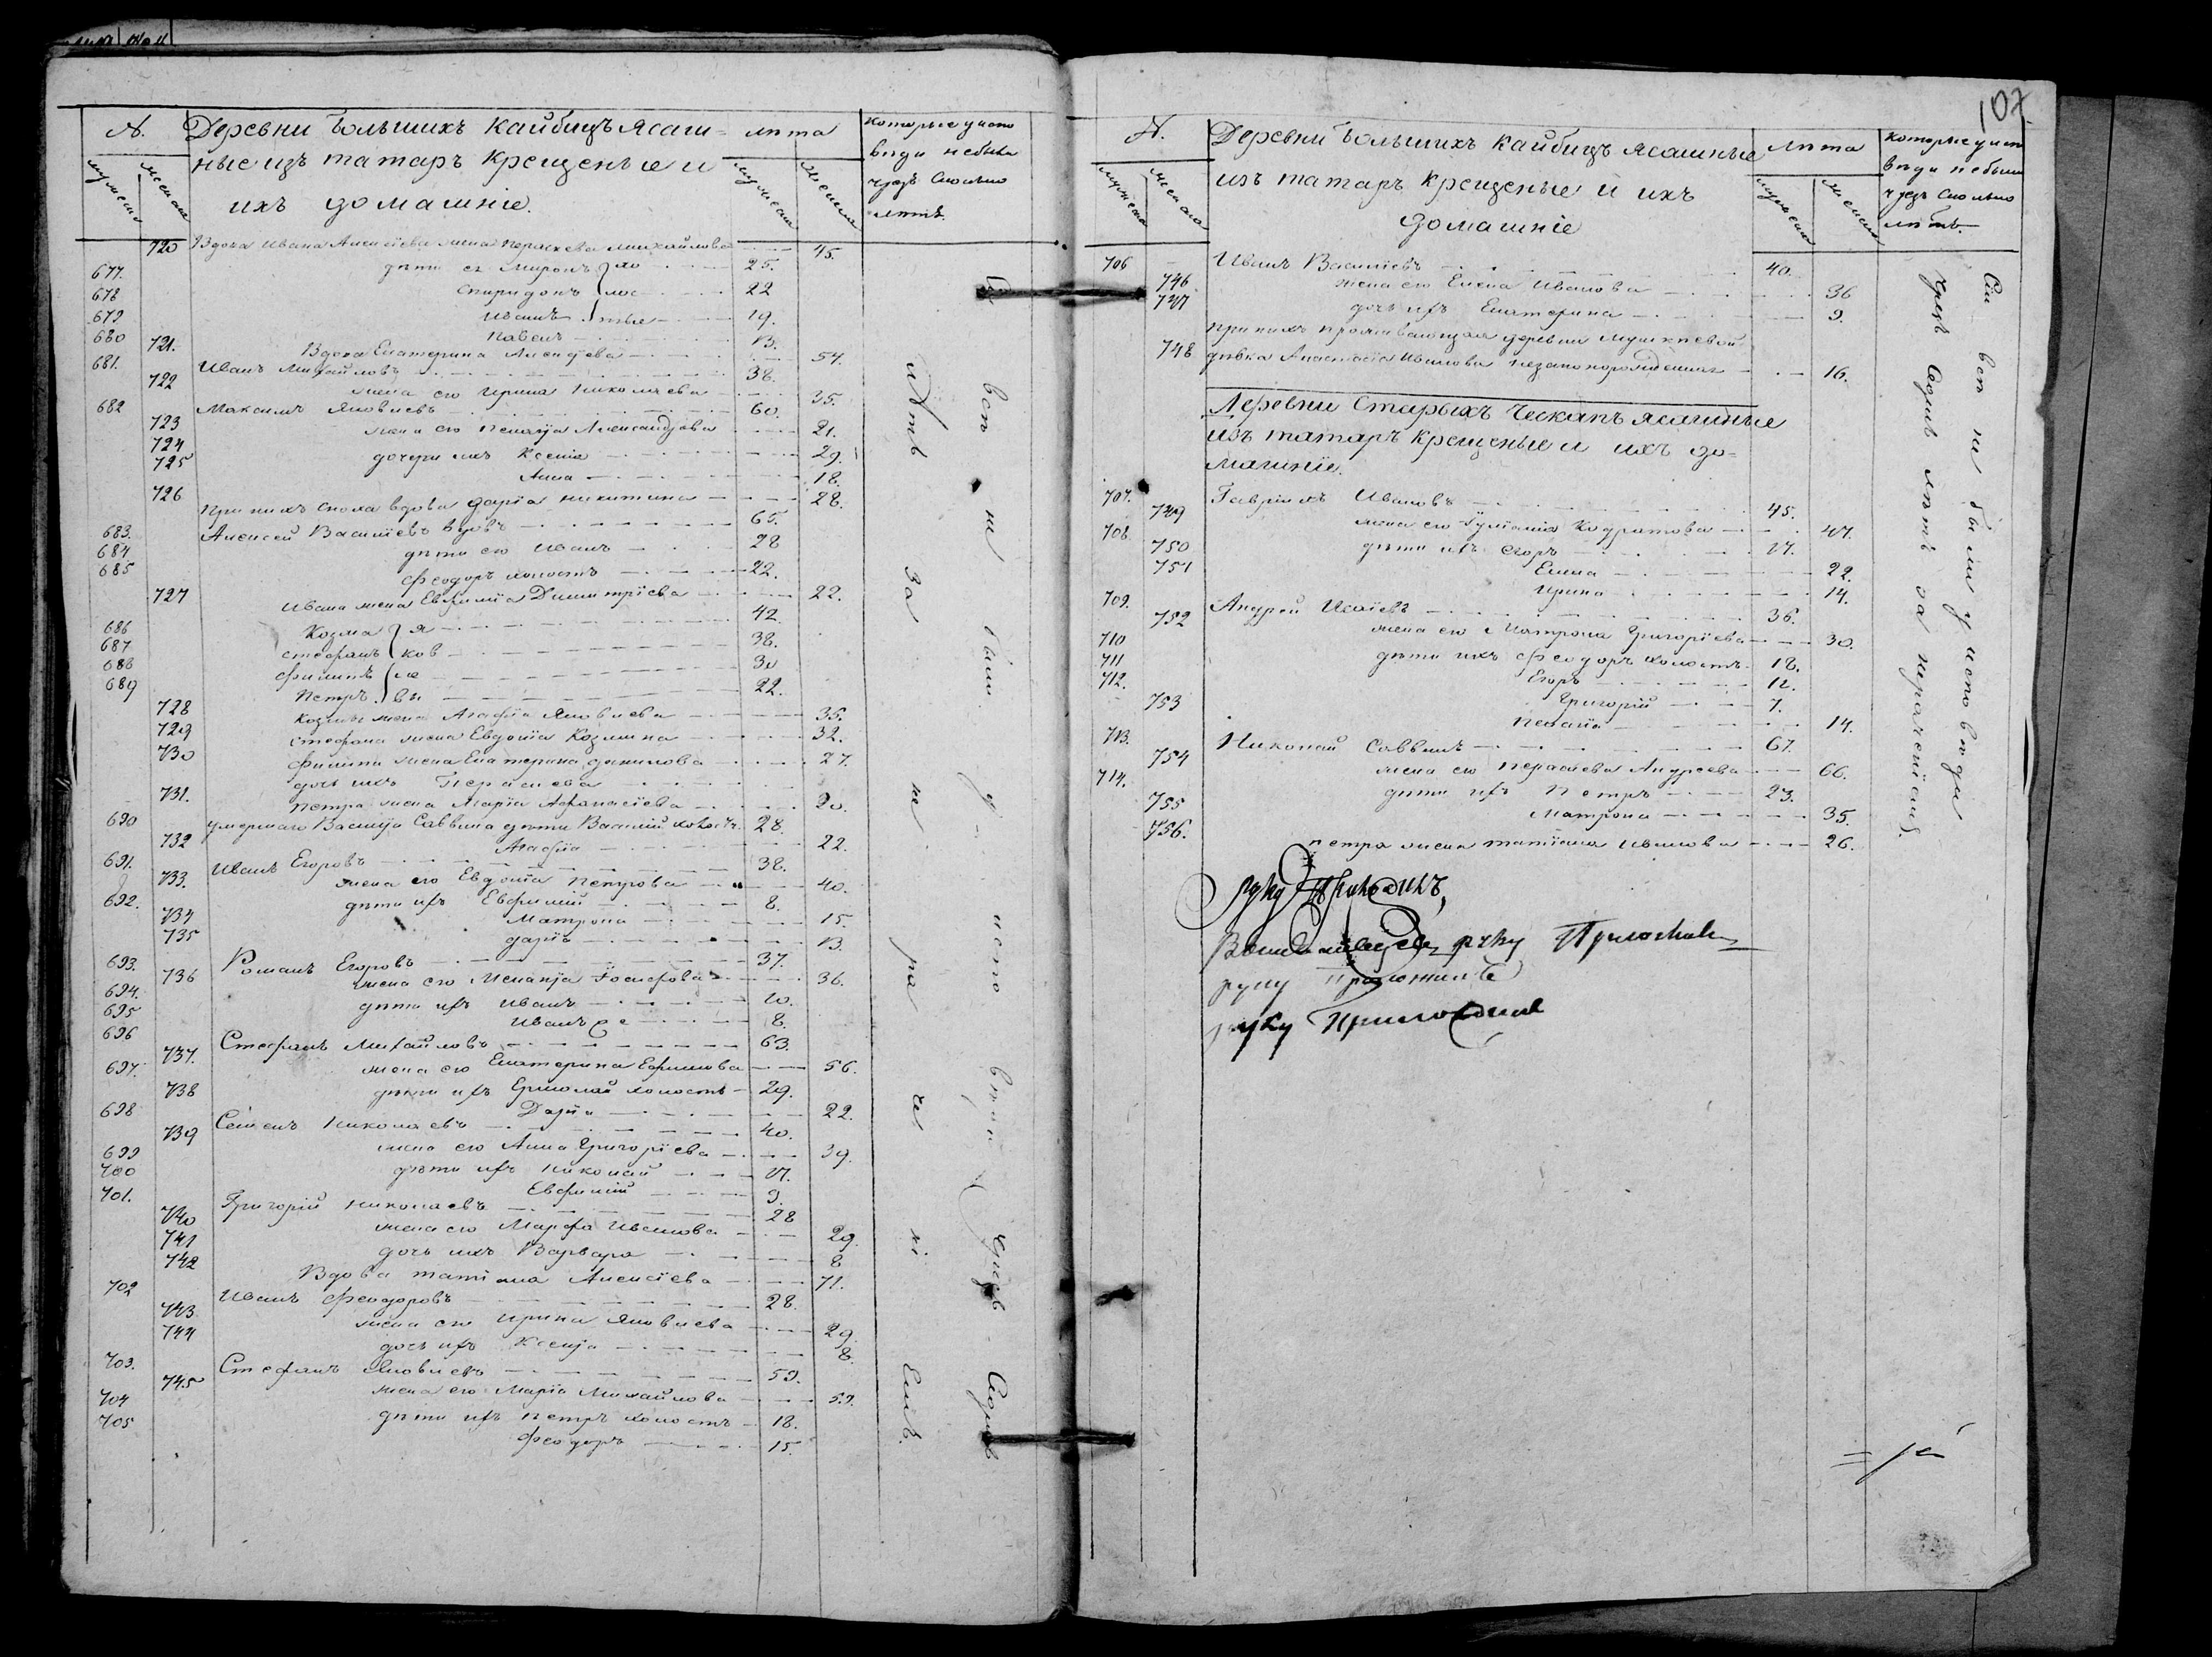 №.
Деревни Большихъ Кайбицъ Ясаш-
ные изъ татаръ Крещеные и
ихъ домашніе.
лѣта
которые уиспо
вѣди небыли
чрезъ сколько
лѣтъ.
мужеска
женска
мужеска
женска
720 Вдова Ивана Алексіева жена Параскева Михайлова 45.
677. дѣти ея Миронъ хо 25.
678 Спиридонъ лос 22
679 Иванъ тые 19.
680 Павелъ 13.
721. Вдова Екатерина 54.
681. Иванъ Михайловъ 38.
722 жена его Ирина Николаева 35.
682 Максимъ Яковлевъ 60.
723 жена его Пелагія Александрова 21.
724 дочери ихъ Ксенія 29.
725 Анна 18.
726 При нихъ сноха вдова Дарія Никитина 28.
683. Алексей Василіевъ вдовъ 65.
684 дѣти его Иванъ 28
685 Феодоръ холостъ 22.
727 Ивана жена Евфимія Димитріева 22.
686 Козма Я 42.
687 Стефанъ ков 38.
688 Филипъ ле 30
689 Петръ вы 22.
728 Козмы жена Агафіа Яковлева 35.
729 Стефана жена Евдокіа Козмина 32.
730 Филипа жена Екатерина Данилова 27.
дочь ихъ Параскева
731. Петра жена Маріа Афанасіева 20.
690 умершаго Василія Саввина дѣти Василій холос. 28.
732 Агафіа 22.
691. Иванъ Егоровъ 38.
733. жена его Евдокіа Петрова 40.
692. дѣти ихъ Евфимій 8.
734 Матрона 15.
735 Даріа 13.
693. Романъ Егоровъ 37.
736 жена его Меланія Іосифова 36.
694. дѣти ихъ Иванъ 10.
695 Иванъ же 8.
696 Стефанъ Михайловъ 63.
737. жена его Екатерина Ефимова 56.
697. дѣти ихъ Ермолай холостъ 29.
738 Даріа 22.
698 Семенъ Николаевъ 40.
739 жена его Анна Григоріева 39.
699 дѣти ихъ Николай 17.
700 Евфимій 9.
701. Григорій Николаевъ 28
740 жена его Марфа Иванова 29.
741 дочь ихъ Варвара 8
742 Вдова Татіана Алексіева 71.
702 Иванъ Феодоровъ 28.
743 жена его Ирина Яковлева 29.
744 дочь ихъ Ксенія 8.
703. Стефанъ Яковлевъ 59.
745 жена его Маріа Михайлова 59.
704 дѣти ихъ Петръ холостъ 18.
705 Феодоръ 15.
Сіи всѣ не были у исповѣди чрезъ седмь
лѣтъ за нераченіемъ.
107.
№.
Деревни Большихъ Кайбицъ Ясашные
изъ татаръ Крещеные и ихъ
домашніе
лѣта
которые уиспо
вѣди небыли
чрезъ сколько
лѣтъ.
мужеска
женска
мужеска
женска
706 Иванъ Василіевъ 40.
746 жена его Елена Иванова 36
747 дочь ихъ Екатерина 9.
При нихъ проживающая деревни
748 дѣвка Анастасіа Иванова незаконорожденная 16.
Деревни Старыхъ Чекапъ Ясашные
изъ татаръ Крещеные и ихъ до-
машніе.
707. Гавріилъ Ивановъ 45.
749 жена его Кодратова 47.
708 дѣти ихъ Егоръ 17.
750 Елена 22.
751 Ирина 14.
709. Андрей Исаіевъ 36.
752 жена его Матрона Григоріева 30.
710 дѣти ихъ Феодоръ холостъ 18.
711 Егоръ 12.
712. Григорій 7.
753 Пелагіа 14.
713. Николай Саввинъ 67.
754 жена его Параскева Андреева 66.
714. дѣти ихъ Петръ 23.
755 Матрона 35.
756. Петра жена Татіана Иванова 26.
Сіи всѣ не были у исповѣди
чрезъ седмь лѣтъ за нераченіемъ.
руку приложилъ,
руку Приложилъ
руку Приложилъ
руку Приложилъ